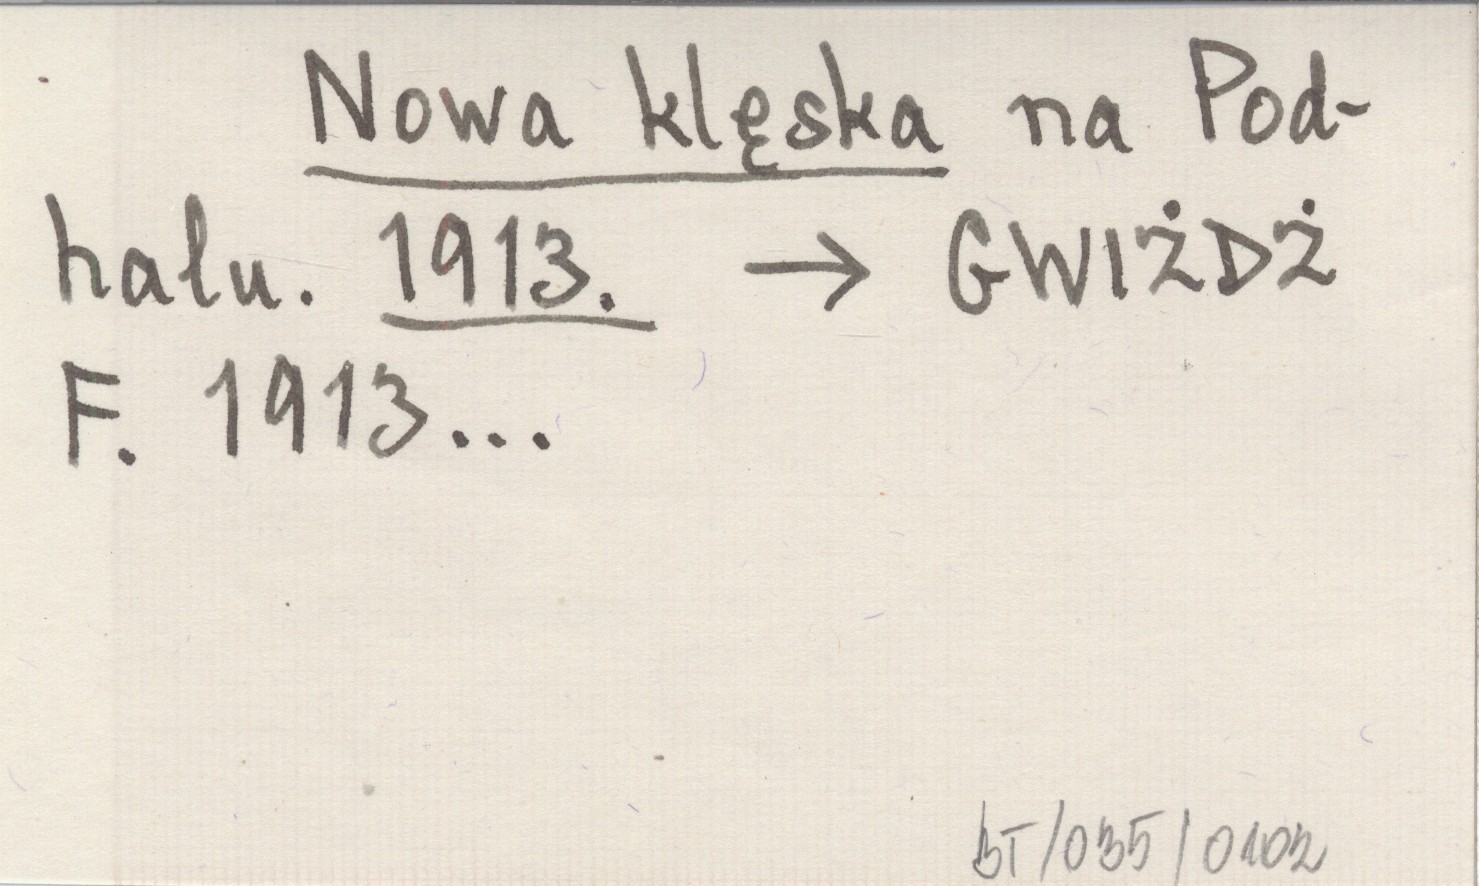 Nowa klęska na Pod-
halu. 1913. → GWIŻDŻ
F. 1913...
BT/035/0102